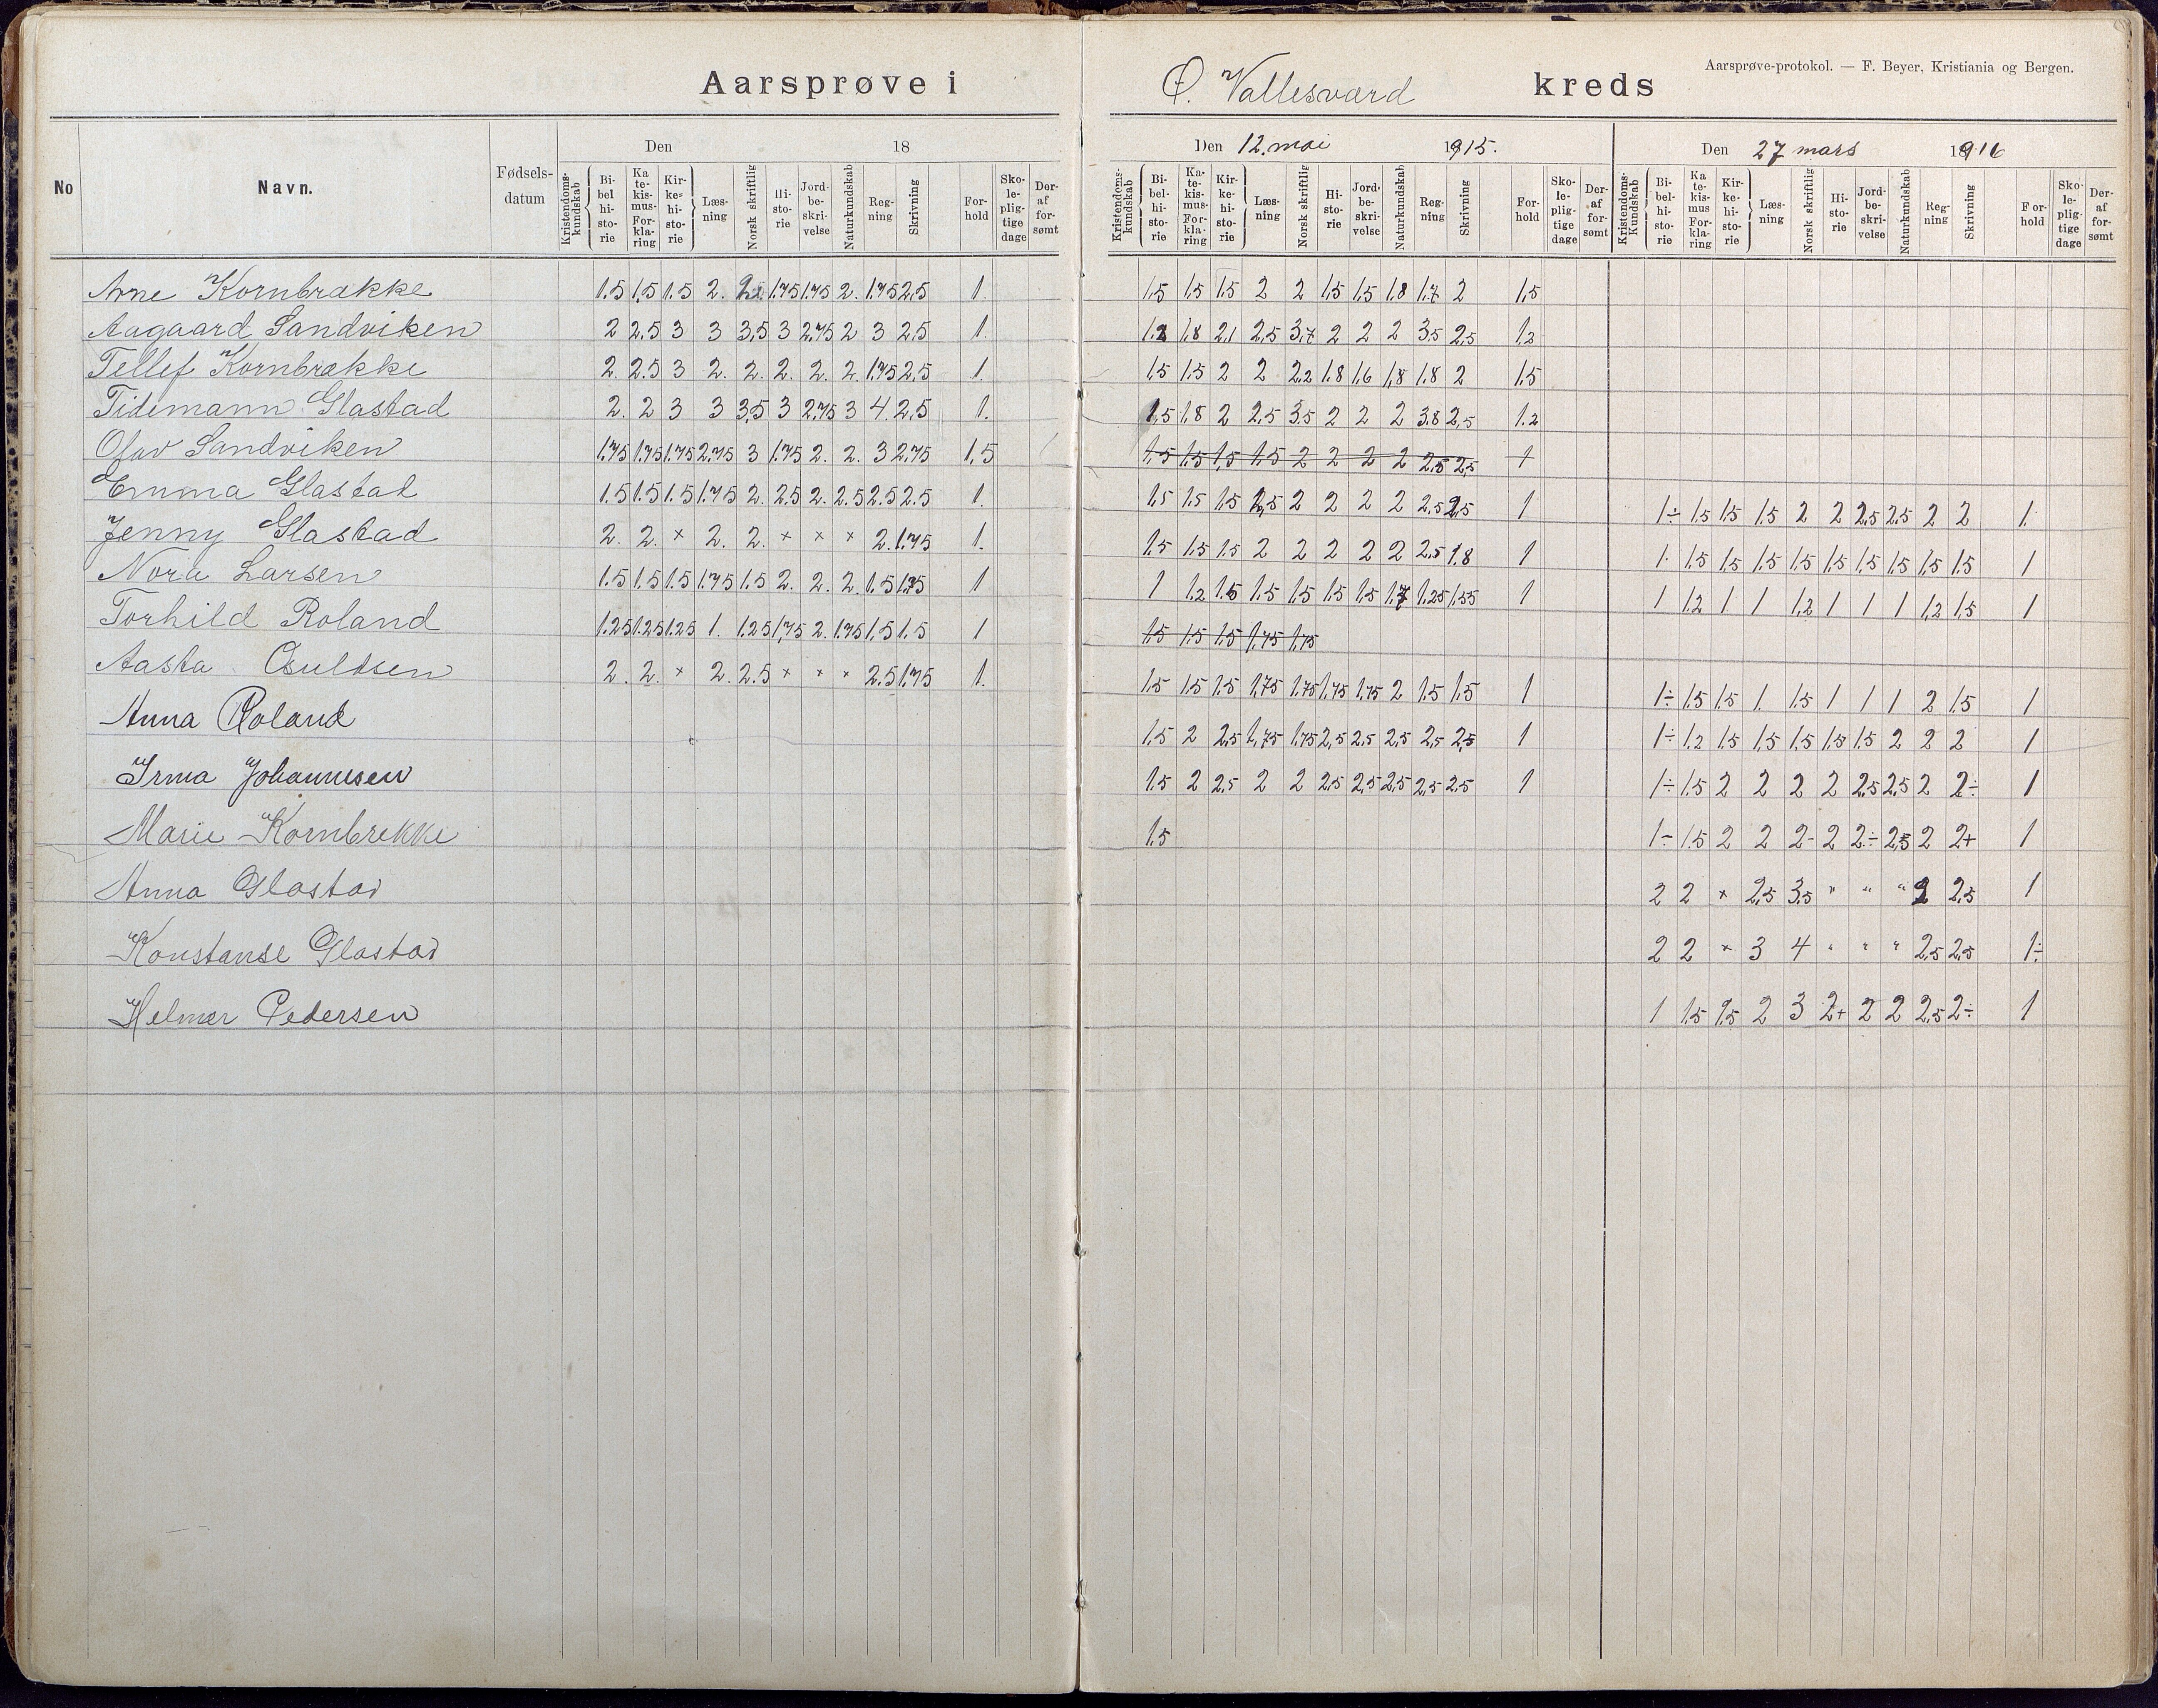 Aarsprøve-protokol. — F. Beyer, Kristiania og Bergen.
Aarsprøve i Ø. Vallesværd kreds
No Navn. Fødsels-datum Den 18 Den 12. mai 1915. Den 27 mars 1916
Kristendoms-kundskab Bi-bel hi-sto-rie Ka te-kis-mus- For-kla-ring Kir-ke-hi-sto-rie Læs-ning Norsk skriftlig Hi-sto-rie Jord-be-skri-velse Naturkundskab Reg-ning Skrivning For-hold Sko-le-plig-tige dage Der-af for-sømt
Kristendoms-kundskab Bi-bel-hi-sto-rie Ka-te-kis-mus- For-kla-ring Kir-ke-hi-sto-rie Læs-ning Norsk skriftlig Hi-sto-rie Jord-be-skri-velse Naturkundskab Reg-ning Skrivning For-hold Sko-le-plig-tige dage Der-af for-sømt
Kristendoms-Kundskab Bi-bel-hi-sto-rie Ka te-kis-mus For-kla-ring Kir-ke-hi-sto-rie Læs-ning Norsk skriftlig Hi-sto-rie Jord-be-skri-velse Naturkundskab Reg-ning Skrivning For-hold Sko-le-plig-tige dage Der-af for-sømt
Arne Kornbrække 1.5 1,5 1.5 2. 1.75 1.75 2. 1.75 2,5 1. 1,5 1,5 1,5 2 2 1,5 1,5 1,8 1,7 2 1,5
Aagaard Sandviken 2 2.5 3 3 3,5 3 2.75 2 3 2,5 1. 1,8 2,1 2,5 3,7 2 2 2 3,5 2,5 1,2
Tellef Kornbrække 2. 2.5 3 2. 2. 2. 2. 2. 1.75 2,5 1. 1,5 1,5 2 2 2,2 1,8 1,6 1,8 1,8 2 1,5
Tidemann Glastad 2. 2 3 3 3,5 3 2.75 3 4. 2,5 1. 1,5 1,8 2 2,5 3,5 2 2 2 3,8 2,5 1.2
Olav Sandviken 1.75 1.75 1.75 2.75 3 1.75 2. 2. 3 2.75 1,5 1,5 1,5 1,5 1,5 2 2 2 2 2,5 2,5 1
Emma Glastad 1.5 1.5 1.5 1.75 2. 2.5 2. 2.5 2.5 2.5 1. 1,5 1,5 1,5 2,5 2 2 2 2 2,5 2,5 1 1÷ 1,5 1,5 1,5 2 2 2,5 2,5 2 2 1.
Jenny Glastad 2. 2. × 2. 2. × × × 2. 1.75 1. 1,5 1,5 1,5 2 2 2 2 2 2,5 1,8 1 1. 1,5 1,5 1,5 1,5 1,5 1,5 1,5 1,5 1,5 1
Nora Larsen 1.5 1.5 1.5 1.75 1.5 2. 2. 2. 1.5 1 1 1,2 1,5 1,5 1,5 1,5 1,5 1,7 1,25 1,55 1 1 1,2 1 1 1,2 1 1 1 1,2 1,5 1
Torhild Roland 1.25 1.25 1.25 1. 1.25 1,75 2. 1.75 1,5 1.5 1 1,5 1,5 1,5 1,75 1,75
Aasta Osuldsen 2. 2. × 2. 2.5 × × × 2.5 1.75 1. 1,5 1,5 1,5 1,75 1,75 1,75 1,75 2 1,5 1,5 1 1÷ 1,5 1,5 1. 1,5 1 1 1 2 1,5 1
Anna Roland 1,5 2 2,5 1,75 1,75 2,5 2,5 2,5 2,5 2,5 1 1÷ 1,2 1,5 1,5 1,5 1,5 1,5 2 2 2 1
Irma Johannesen 1,5 2 2,5 2 2 2,5 2,5 2,5 2,5 2,5 1 1÷ 1,5 2 2 2 2 2,5 2,5 2 2÷ 1
Marie Kornbrekke 1,5 1÷ 1,5 2 2 2- 2 2÷ 2,5 2 2+ 1
Anna Glastad 2 2 × 2,5 3,5 " " " 2 2,5 1
Konstanse Glastad 2 2 × 3 4 " " " 2,5 2,5 1÷
Helmer Pedersen 1 1,5 1,5 2 3 2+ 2 2 2,5 2÷ 1